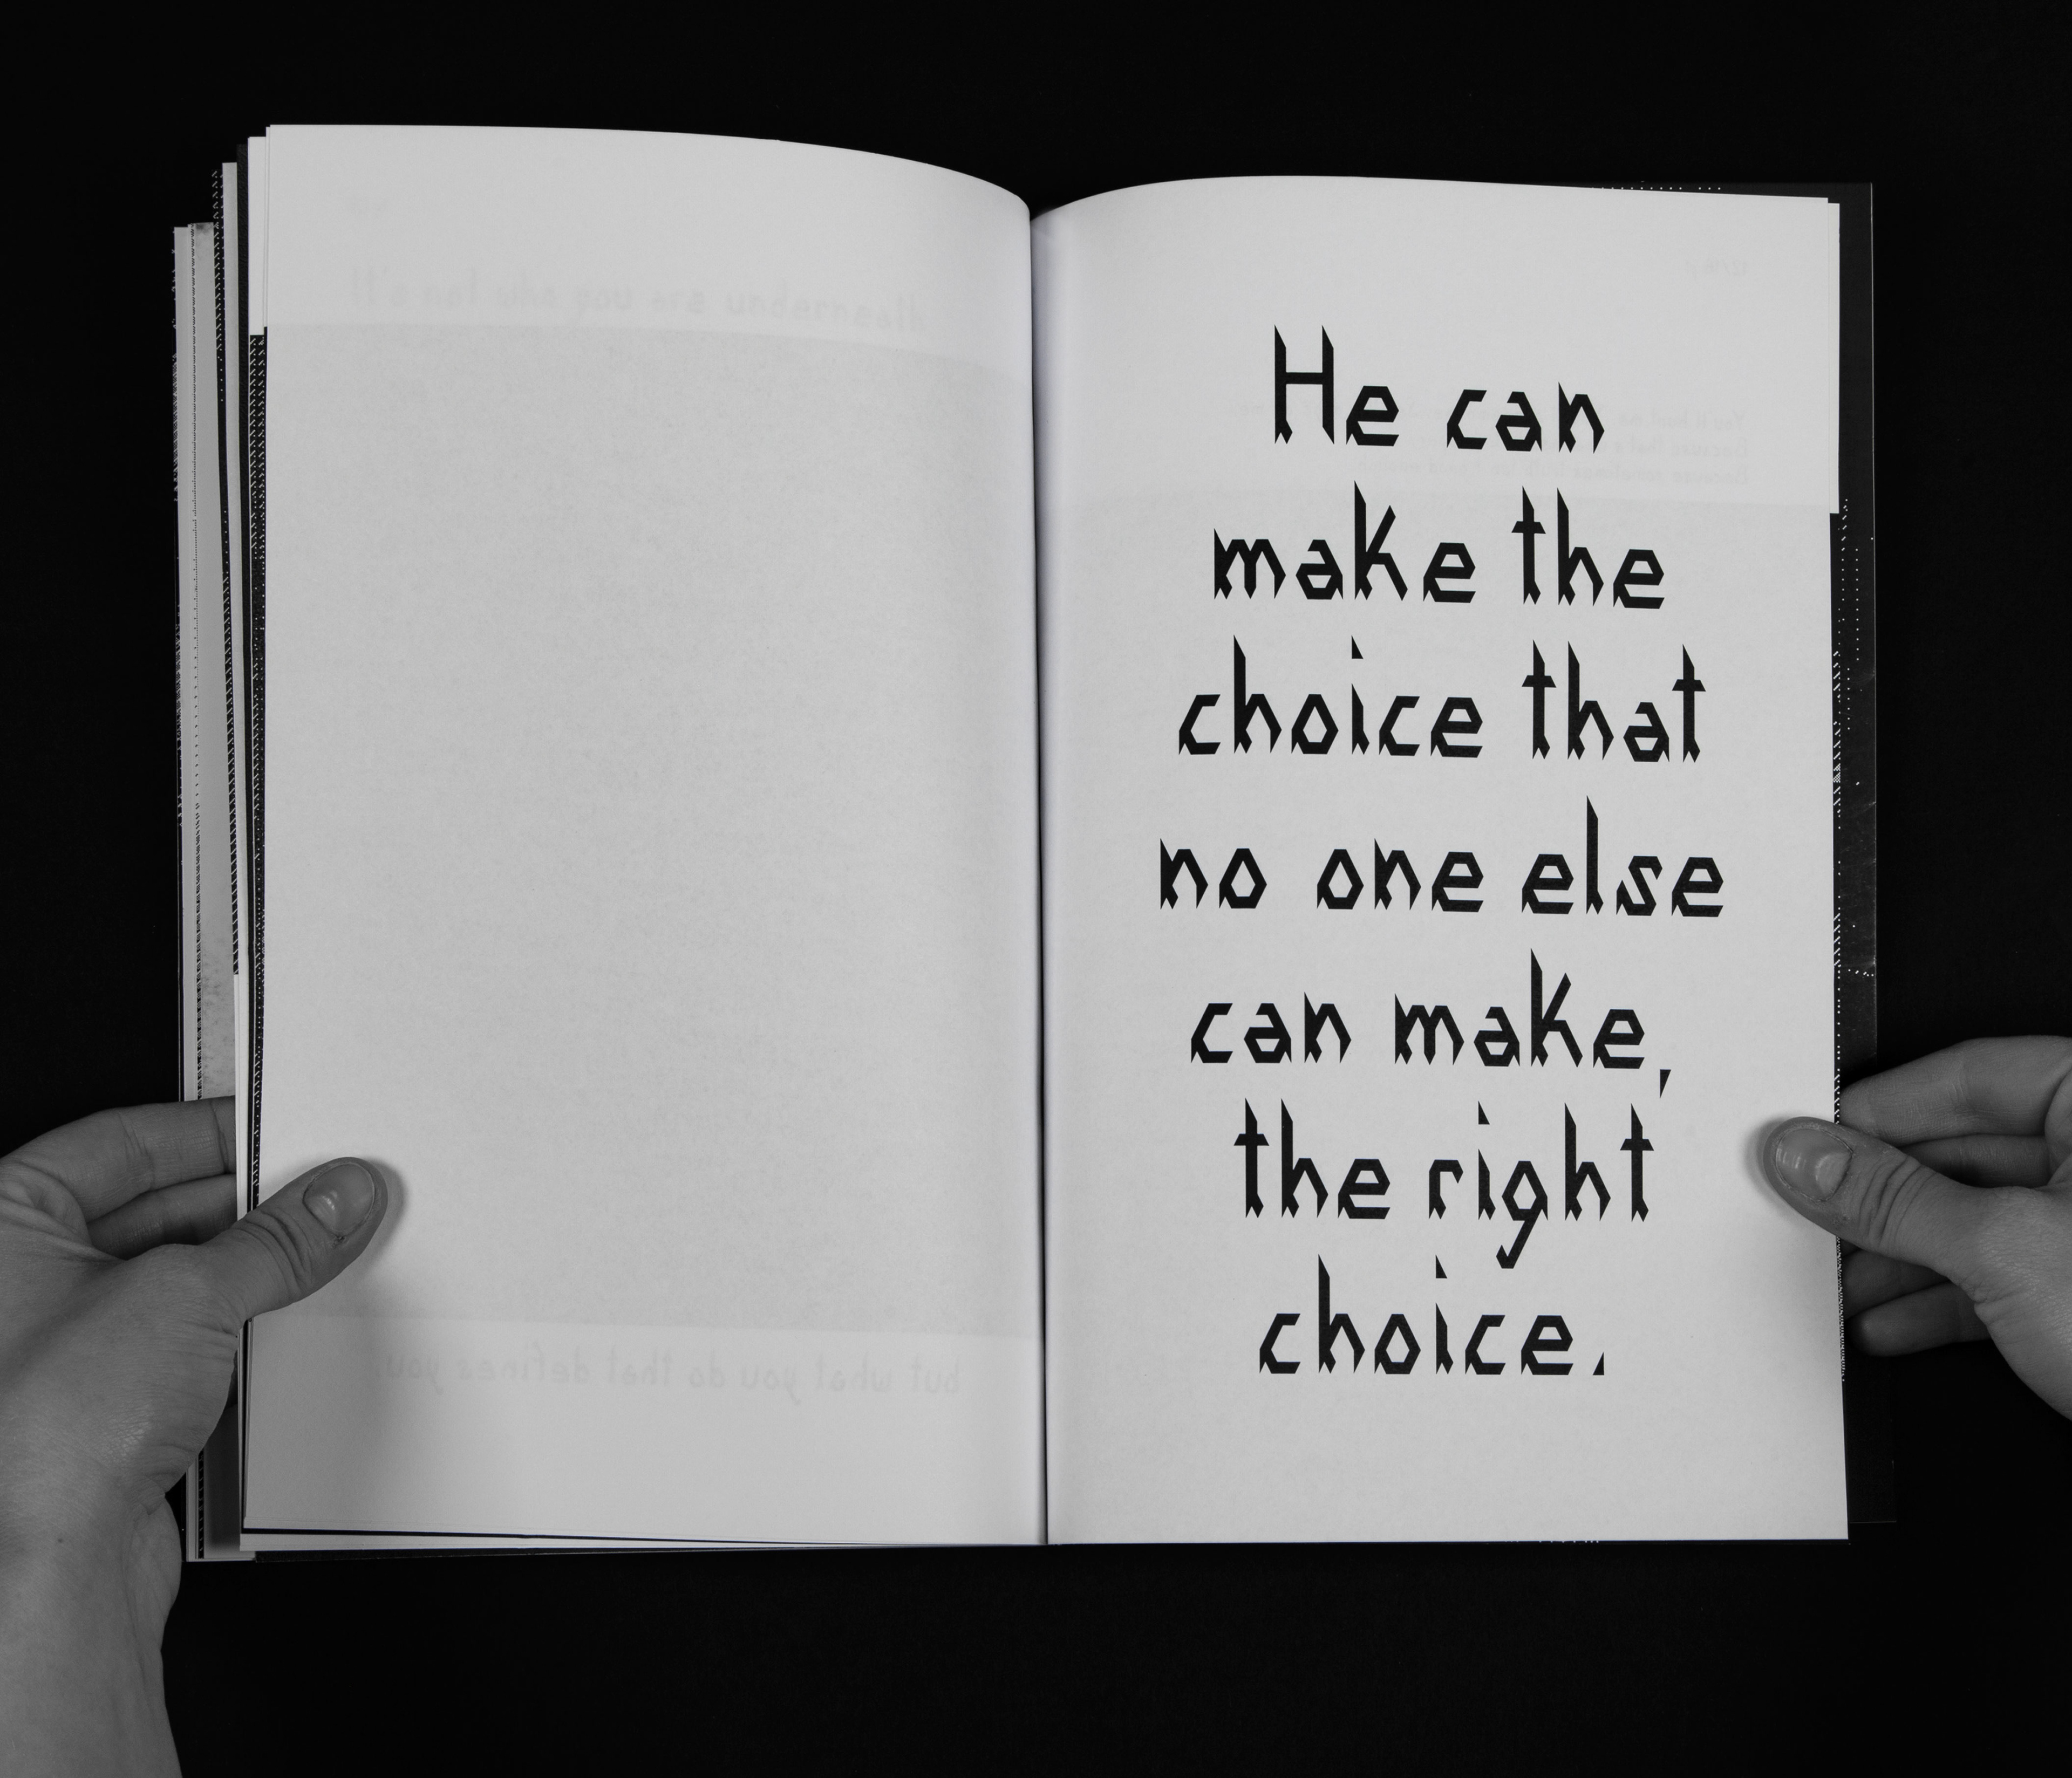 It's not who you are underneath
but what you do that defines you.
12/16 pt
He can
make the
choice that
no one else
can make,
the right
choice.